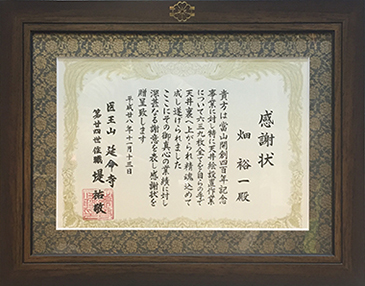 感謝状
畑 裕一 殿
貴方は当山開創四百年記念
事業に対し特に天井絵設置作業
について六三九枚全てを自らの手で
天井裏へ上がられ精魂込めて
成し遂げられました
ここにその御真心の業績に対し
深甚なる謝意を表し感謝状を
贈呈致します
平成廿八年十一月十三日
医王山 延命寺
第廿四世住職 堤 祐敬